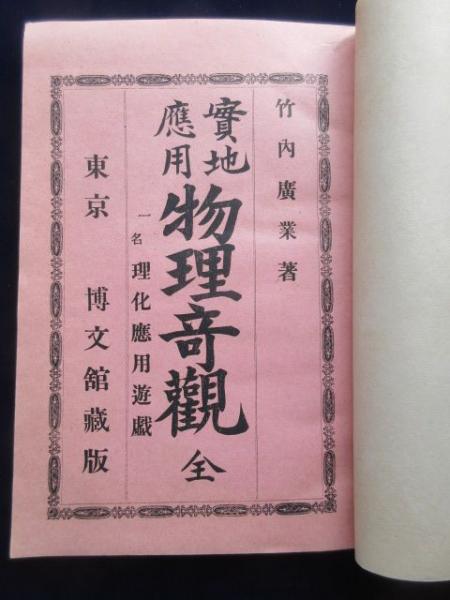 竹內廣業著
實地應用物理奇觀 全
一名理化應用遊戲
東京 博文舘藏版